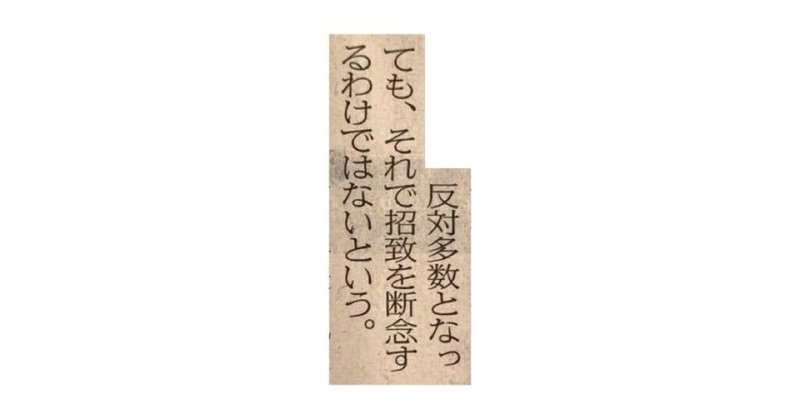 反対多数となっ
ても、それで招致を断念す
るわけではないという。